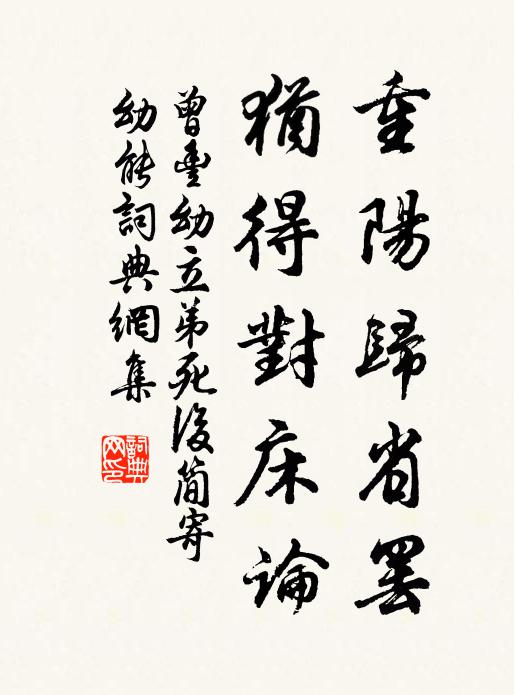 重陽歸省罷
猶得對床論
曾豐幼立弟死後簡寄
幼能詞典網集
詞典網印